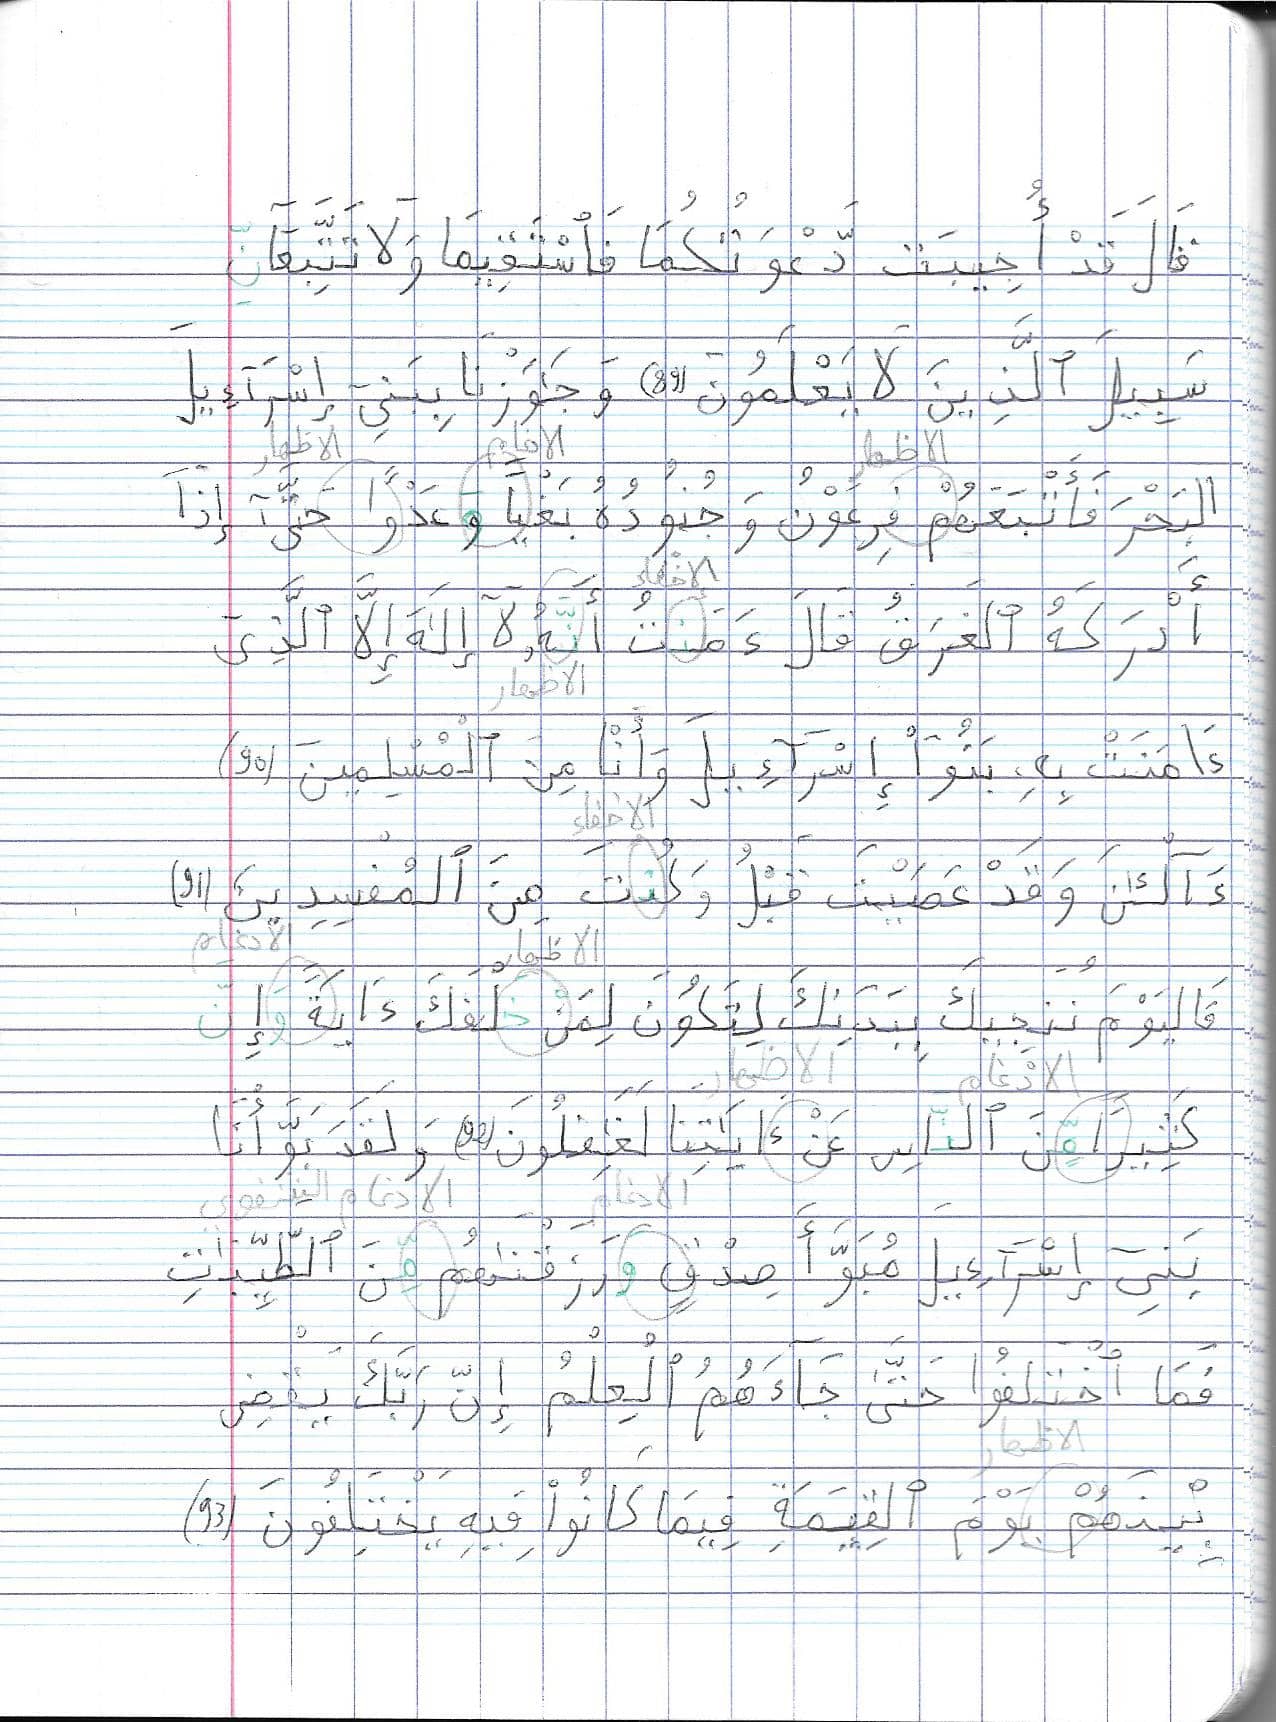 قَالَ قَدْ أُجِيبَت دَّعْوَتُكُمَا فَٱسْتَقِيمَا وَلَا تَتَّبِعَآنِّ
سَبِيلَ ٱلَّذِينَ لَا يَعْلَمُونَ (89) وَجَٰوَزْنَا بِبَنِيٓ إِسْرَآءِيلَ
الاظهار الادغام الاظهار
البَحْرَ فَأَتْبَعَهُمْ فِرْعَوْنُ وَجُنُودُهُ بَغْيًا وَعَدْوًا حَتَّىٰٓ إِذَآ
الإخفاء
أَدْرَكَهُ ٱلْغَرَقُ قَالَ ءَامَنتُ أَنَّهُۥ لَآ إِلَٰهَ إِلَّا ٱلَّذِىٓ
الاظهار
ءَامَنَتْ بِهِۦ بَنُوٓاْ إِسْرَآءِيلَ وَأَنَاْ مِنَ ٱلْمُسْلِمِينَ (90)
الاخفاء
ءَآلْـَٰٔنَ وَقَدْ عَصَيْتَ قَبْلُ وَكُنتَ مِنَ ٱلْمُفْسِدِينَ (91)
الاظهار الادغام
فَاليَوْمَ نُنَجِّيكَ بِبَدَنِكَ لِتَكُونَ لِمَنْ خَلْفَكَ ءَايَةً وَإِنَّ
الادْغام الاظهار
كَثِيرًا مِّنَ ٱلنَّاسِ عَنْ ءَايَٰتِنَا لَغَٰفِلُونَ (92) وَلَقَدْ بَوَّأْنَا
الادغام الادغام الشفوي
بَنِىٓ إِسْرَآءِيلَ مُبَوَّأَ صِدْقٍ وَرَزَقْنَٰهُم مِّنَ ٱلطَّيِّبَٰتِ
فَمَا ٱخْتَلَفُوا حَتَّىٰ جَآءَهُمُ ٱلْعِلْمُ إِنَّ رَبَّكَ يَقْضِى
الاظهار
بَيْنَهُمْ يَوْمَ ٱلْقِيَٰمَةِ فِيمَا كَانُواْ فِيهِ يَخْتَلِفُونَ (93)